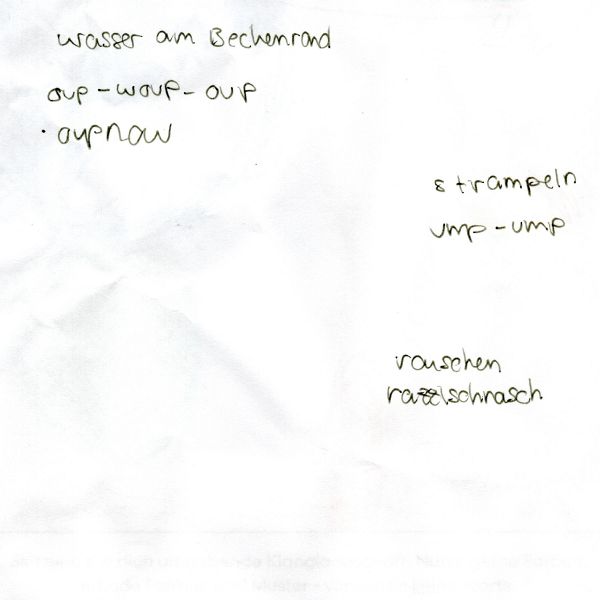 wasser am Beckenrand
oup - woup - oup
oupnow
strampeln
ump - ump
rauschen
razzlschnasch